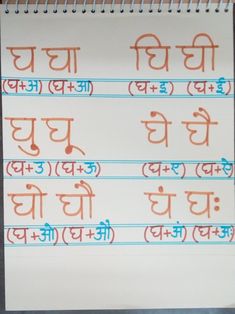 घ घा घि घी
(घ+अ) (घ+आ) (घ+इ) (घ+ई)
घु घू घे घै
(घ+उ) (घ+ऊ) (घ+ए) (घ+ऐ)
घो घौ घं घः
(घ+ओ) (घ+औ) (घ+अं) (घ+अः)